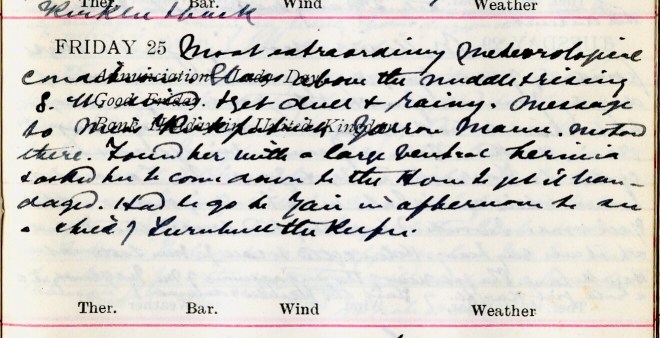 Ther. Bar. Wind Weather
FRIDAY 25 Most extraordinary Meteorological
Annunciation Lady Day. about the middle & rising
& Good Friday. & yet dull & rainy. Message
to Bank Holiday in United Kingdom Yarrow Manse. Motored
there. Found her with a large ventral hernia
& asked her to come down to the Home to get it ban-
daged. Had to go to Yair in afternoon to see
a child of Turnbull the Keeper.
Ther. Bar. Wind Weather